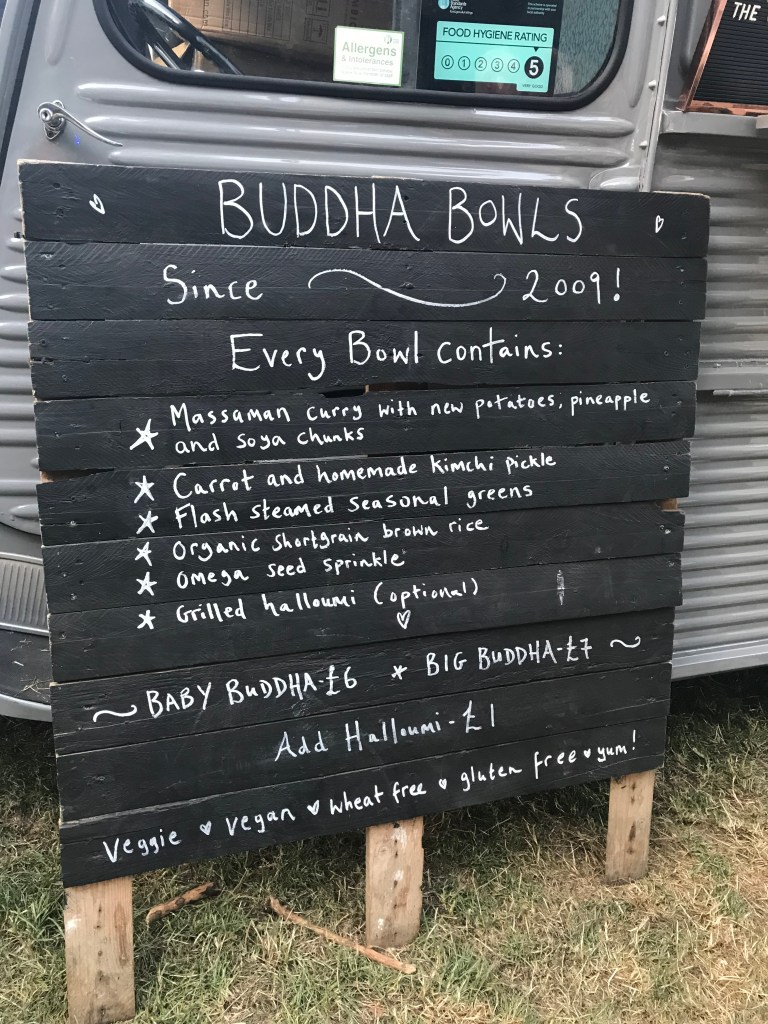 Allergens
& intolerances
Standards
Agency
FOOD HYGIENE RATING
0 1 2 3 4 5
VERY GOOD
THE
BUDDHA BOWLS
Since 2009!
Every Bowl contains:
Massaman curry with new potatoes, pineapple
and soya chunks
Carrot and homemade kimchi pickle
Flash steamed seasonal greens
Organic shortgrain brown rice
Omega seed sprinkle
Grilled halloumi (optional)
BABY BUDDHA-£6 * BIG BUDDHA-£7
Add Halloumi-£1
Veggie vegan wheat free gluten free yum!